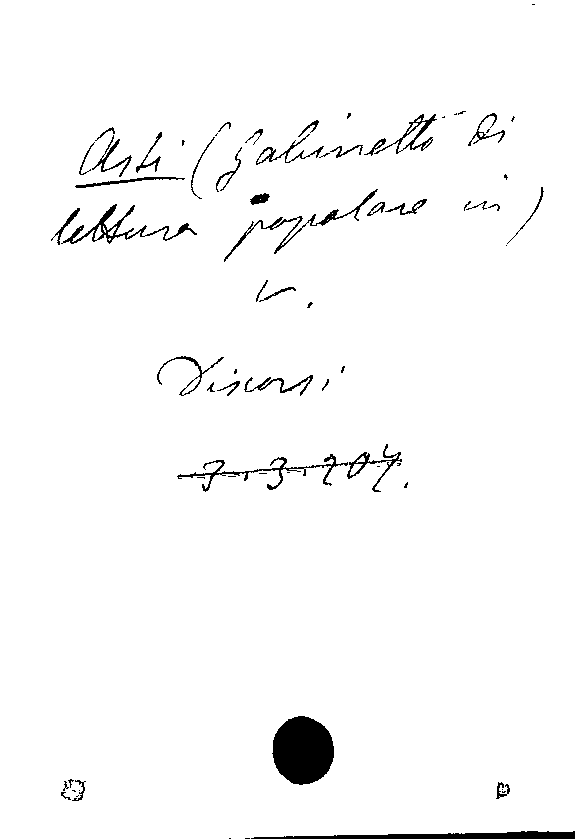 Asti (Gabinetto di
lettura popolare in)
v.
Discorsi
7.3.204.